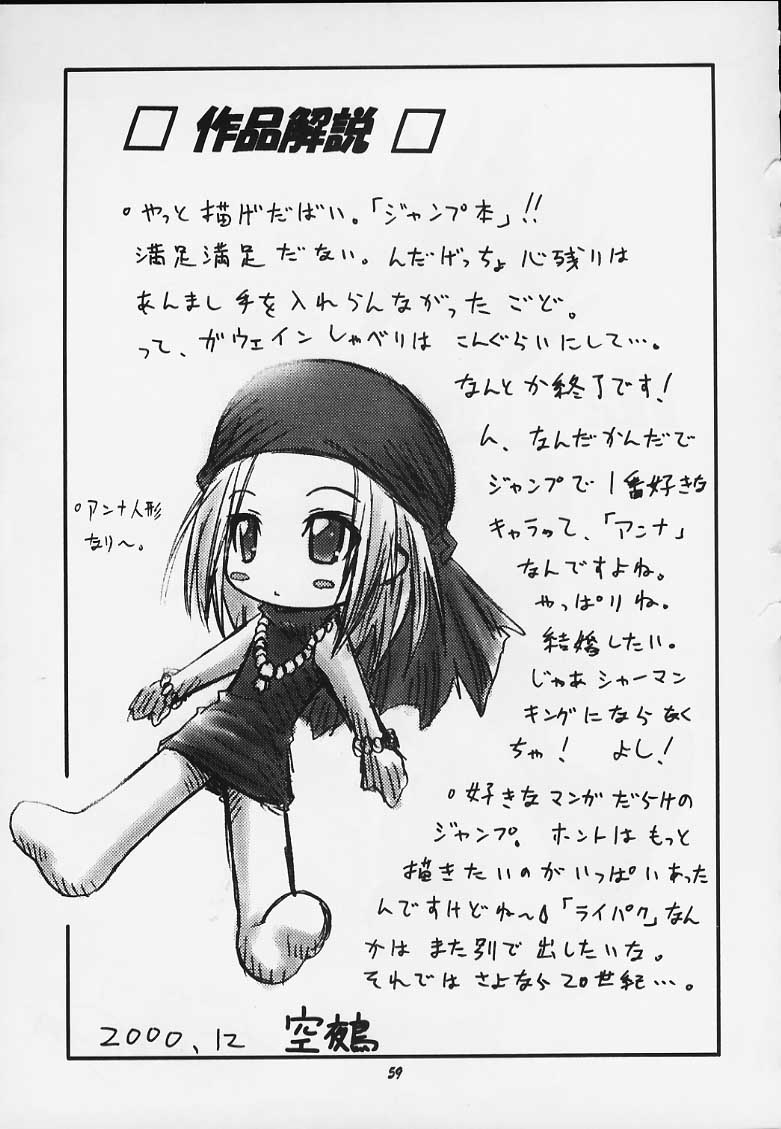 □ 作品解説 □
°やっと描げだばい。「ジャンプ本」!!
満足満足だない。んだげっちょ心残りは
あんまし手を入れらんながったごど。
って、ガウェインしゃべりはこんぐらいにして…。
なんとか終了です!
ん、なんだかんだで
ジャンプで1番好きな
キャラって、「アンナ」
なんですよね。
やっぱりね。
結婚したい。
じゃあシャーマン
キングにならなく
ちゃ! よし!
°アンナ人形
なり〜。
°好きなマンガだらけの
ジャンプ。ホントはもっと
描きたいのがいっぱいあった
んですけどね〜。「ライパク」なん
かはまた別で出したいな。
それではさよなら20世紀…。
2000.12 空鵺
59